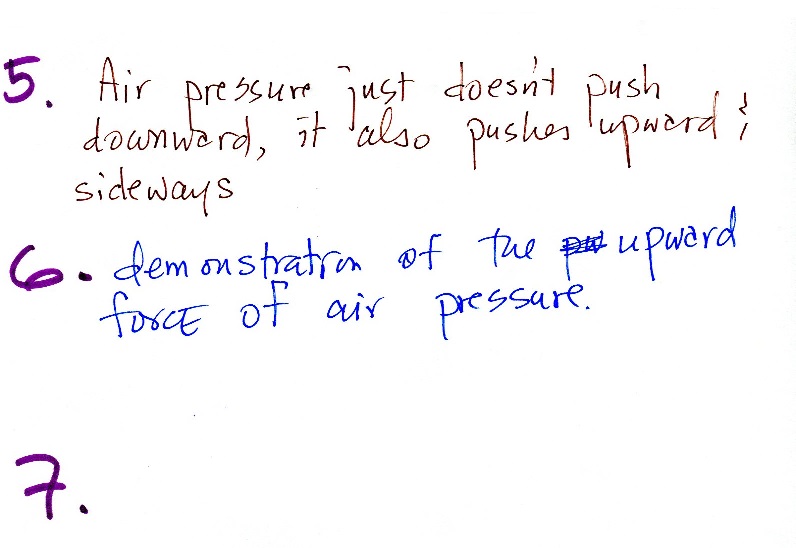 5. Air pressure just doesn't push
downward, it also pushes upward &
sideways
6. demonstration of the upward
force of air pressure.
7.